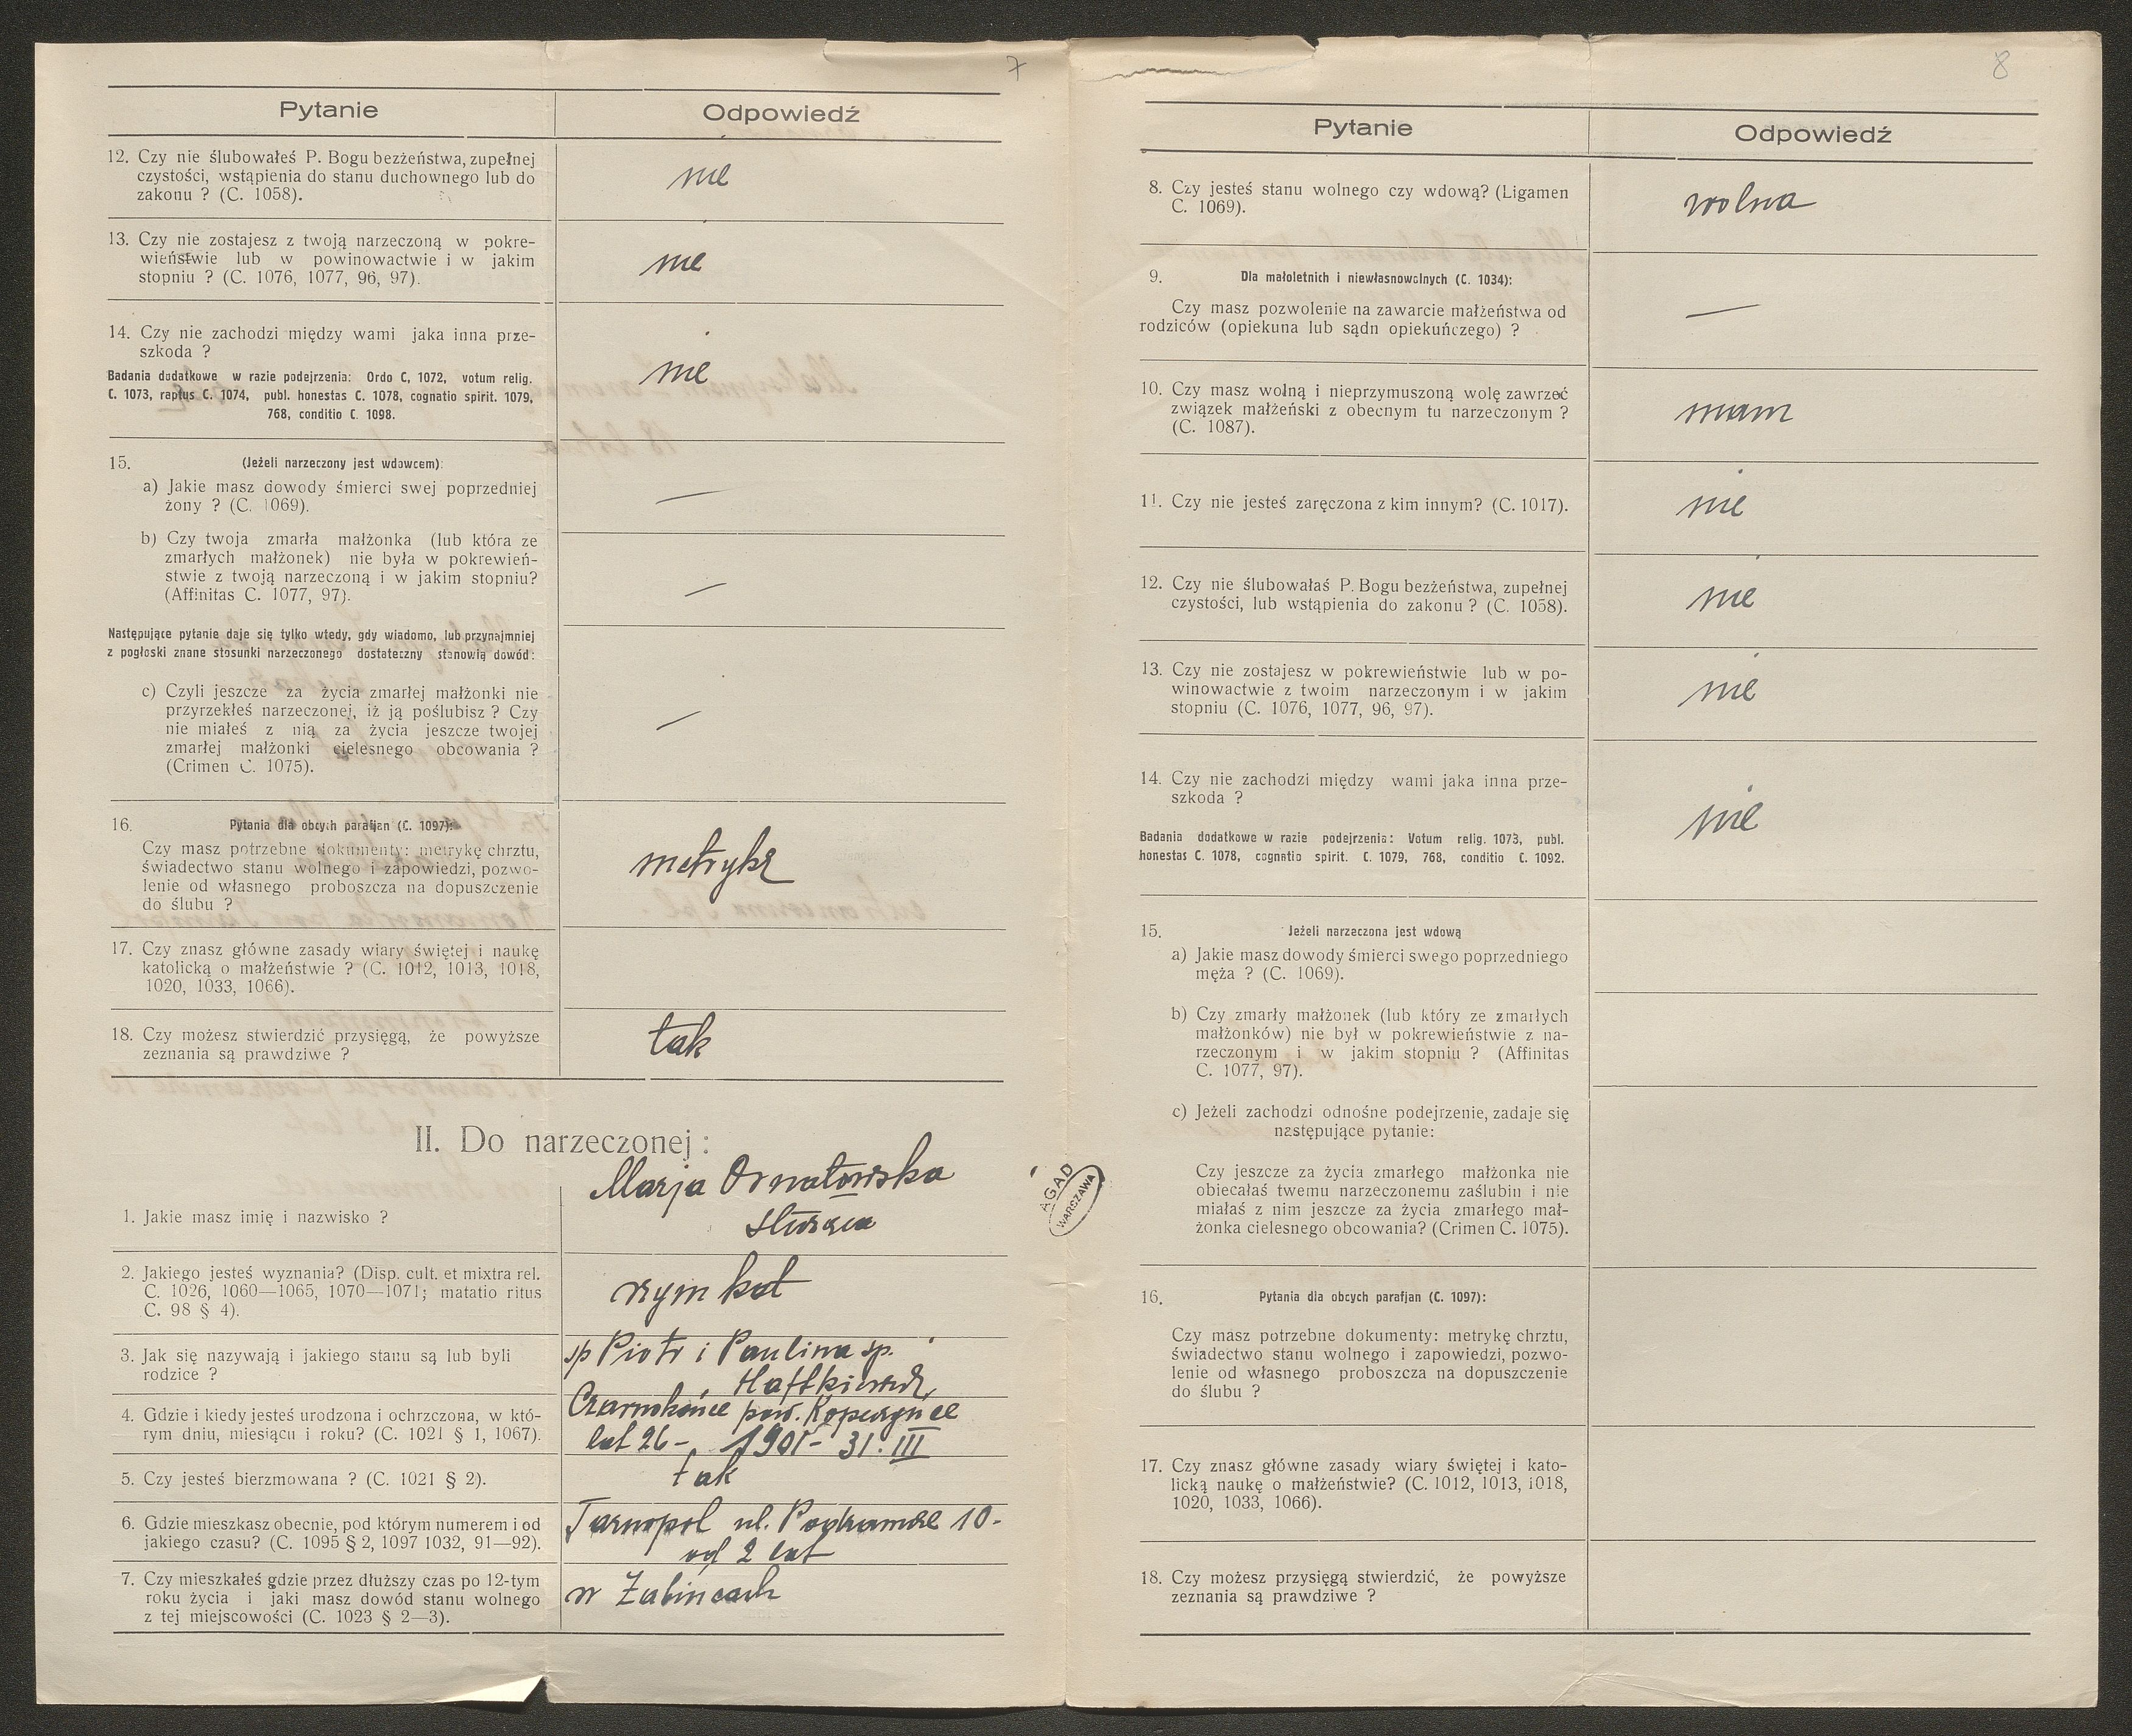 7
Pytanie
Odpowiedź
12. Czy nie ślubowałeś P. Bogu bezżeństwa, zupełnej
czystości, wstąpienia do stanu duchownego lub do
zakonu ? (C. 1058).
nie
13. Czy nie zostajesz z twoją narzeczoną w pokre-
wieństwie lub w powinowactwie i w jakim
stopniu ? (C. 1076, 1077, 96, 97).
nie
14. Czy nie zachodzi między wami jaka inna prze-
szkoda ?
nie
Badania dodatkowe w razie podejrzenia: Ordo C, 1072, votum relig.
C. 1073, raptus C. 1074, publ. honestas C. 1078, cognatio spirit. 1079,
768, conditio C. 1098.
15. (Jeżeli narzeczony jest wdowcem):
a) Jakie masz dowody śmierci swej poprzedniej
żony ? (C. 1069).
—
b) Czy twoja zmarła małżonka (lub która ze
zmarłych małżonek) nie była w pokrewień-
stwie z twoją narzeczoną i w jakim stopniu?
(Affinitas C. 1077, 97).
—
Następujące pytanie daje się tylko wtedy, gdy wiadomo, lub przynajmniej
z pogłoski znane stosunki narzeczonego dostateczny stanowią dowód:
c) Czyli jeszcze za życia zmarłej małżonki nie
przyrzekłeś narzeczonej, iż ją poślubisz ? Czy
nie miałeś z nią za życia jeszcze twojej
zmarłej małżonki cielesnego obcowania ?
(Crimen C. 1075).
—
16. Pytania dla obcych parafjan (C. 1097):
Czy masz potrzebne dokumenty: metrykę chrztu,
świadectwo stanu wolnego i zapowiedzi, pozwo-
lenie od własnego proboszcza na dopuszczenie
do ślubu ?
metrykę
17. Czy znasz główne zasady wiary świętej i naukę
katolicką o małżeństwie ? (C. 1012, 1013, 1018,
1020, 1033, 1066).
18. Czy możesz stwierdzić przysięgą, że powyższe
zeznania są prawdziwe ?
tak
II. Do narzeczonej :
1. Jakie masz imię i nazwisko ?
Marja Ornatowska
służąca
2. Jakiego jesteś wyznania? (Disp. cult. et mixtra rel.
C. 1026, 1060—1065, 1070—1071; matatio ritus
C. 98 § 4).
rzym kat
3. Jak się nazywają i jakiego stanu są lub byli
rodzice ?
sp Piotr i Paulina sp.
4. Gdzie i kiedy jesteś urodzona i ochrzczona, w któ-
rym dniu, miesiącu i roku? (C. 1021 § 1, 1067).
Czarnokońce pow. Kopyczyńce
lat 26 - 1901 - 31. III
5. Czy jesteś bierzmowana ? (C. 1021 § 2).
tak
6. Gdzie mieszkasz obecnie, pod którym numerem i od
jakiego czasu? (C. 1095 § 2, 1097 1032, 91—92).
Tarnopol ul. Podzamcze 10-
od 2 lat
7. Czy mieszkałeś gdzie przez dłuższy czas po 12-tym
roku życia i jaki masz dowód stanu wolnego
z tej miejscowości (C. 1023 § 2—3).
w Żabincach
AGAD
WARSZAWA
8
Pytanie
Odpowiedź
8. Czy jesteś stanu wolnego czy wdową? (Ligamen
C. 1069).
wolna
9. Dla małoletnich i niewłasnowolnych (C. 1034):
Czy masz pozwolenie na zawarcie małżeństwa od
rodziców (opiekuna lub sądn opiekuńczego) ?
—
10. Czy masz wolną i nieprzymuszoną wolę zawrzeć
związek małżeński z obecnym tu narzeczonym ?
(C. 1087).
mam
11. Czy nie jesteś zaręczona z kim innym? (C. 1017).
nie
12. Czy nie ślubowałaś P. Bogu bezżeństwa, zupełnej
czystości, lub wstąpienia do zakonu ? (C. 1058).
nie
13. Czy nie zostajesz w pokrewieństwie lub w po-
winowactwie z twoim narzeczonym i w jakim
stopniu (C. 1076, 1077, 96, 97).
nie
14. Czy nie zachodzi między wami jaka inna prze-
szkoda ?
nie
Badania dodatkowe w razie podejrzenia: Votum relig. 1073, publ.
honestas C. 1078, cognatio spirit. C. 1079, 768, conditio C. 1092.
15. Jeżeli narzeczona jest wdową
a) Jakie masz dowody śmierci swego poprzedniego
męża ? (C. 1069).
b) Czy zmarły małżonek (lub który ze zmarłych
małżonków) nie był w pokrewieństwie z na-
rzeczonym i w jakim stopniu ? (Affinitas
C. 1077, 97).
c) Jeżeli zachodzi odnośne podejrzenie, zadaje się
następujące pytanie:
Czy jeszcze za życia zmarłego małżonka nie
obiecałaś twemu narzeczonemu zaślubin i nie
miałaś z nim jeszcze za życia zmarłego mał-
żonka cielesnego obcowania? (Crimen C. 1075).
16. Pytania dla obcych parafjan (C. 1097):
Czy masz potrzebne dokumenty: metrykę chrztu,
świadectwo stanu wolnego i zapowiedzi, pozwo-
lenie od własnego proboszcza na dopuszczenie
do ślubu ?
17. Czy znasz główne zasady wiary świętej i kato-
licką naukę o małżeństwie? (C. 1012, 1013, 1018,
1020, 1033, 1066).
18. Czy możesz przysięgą stwierdzić, że powyższe
zeznania są prawdziwe ?